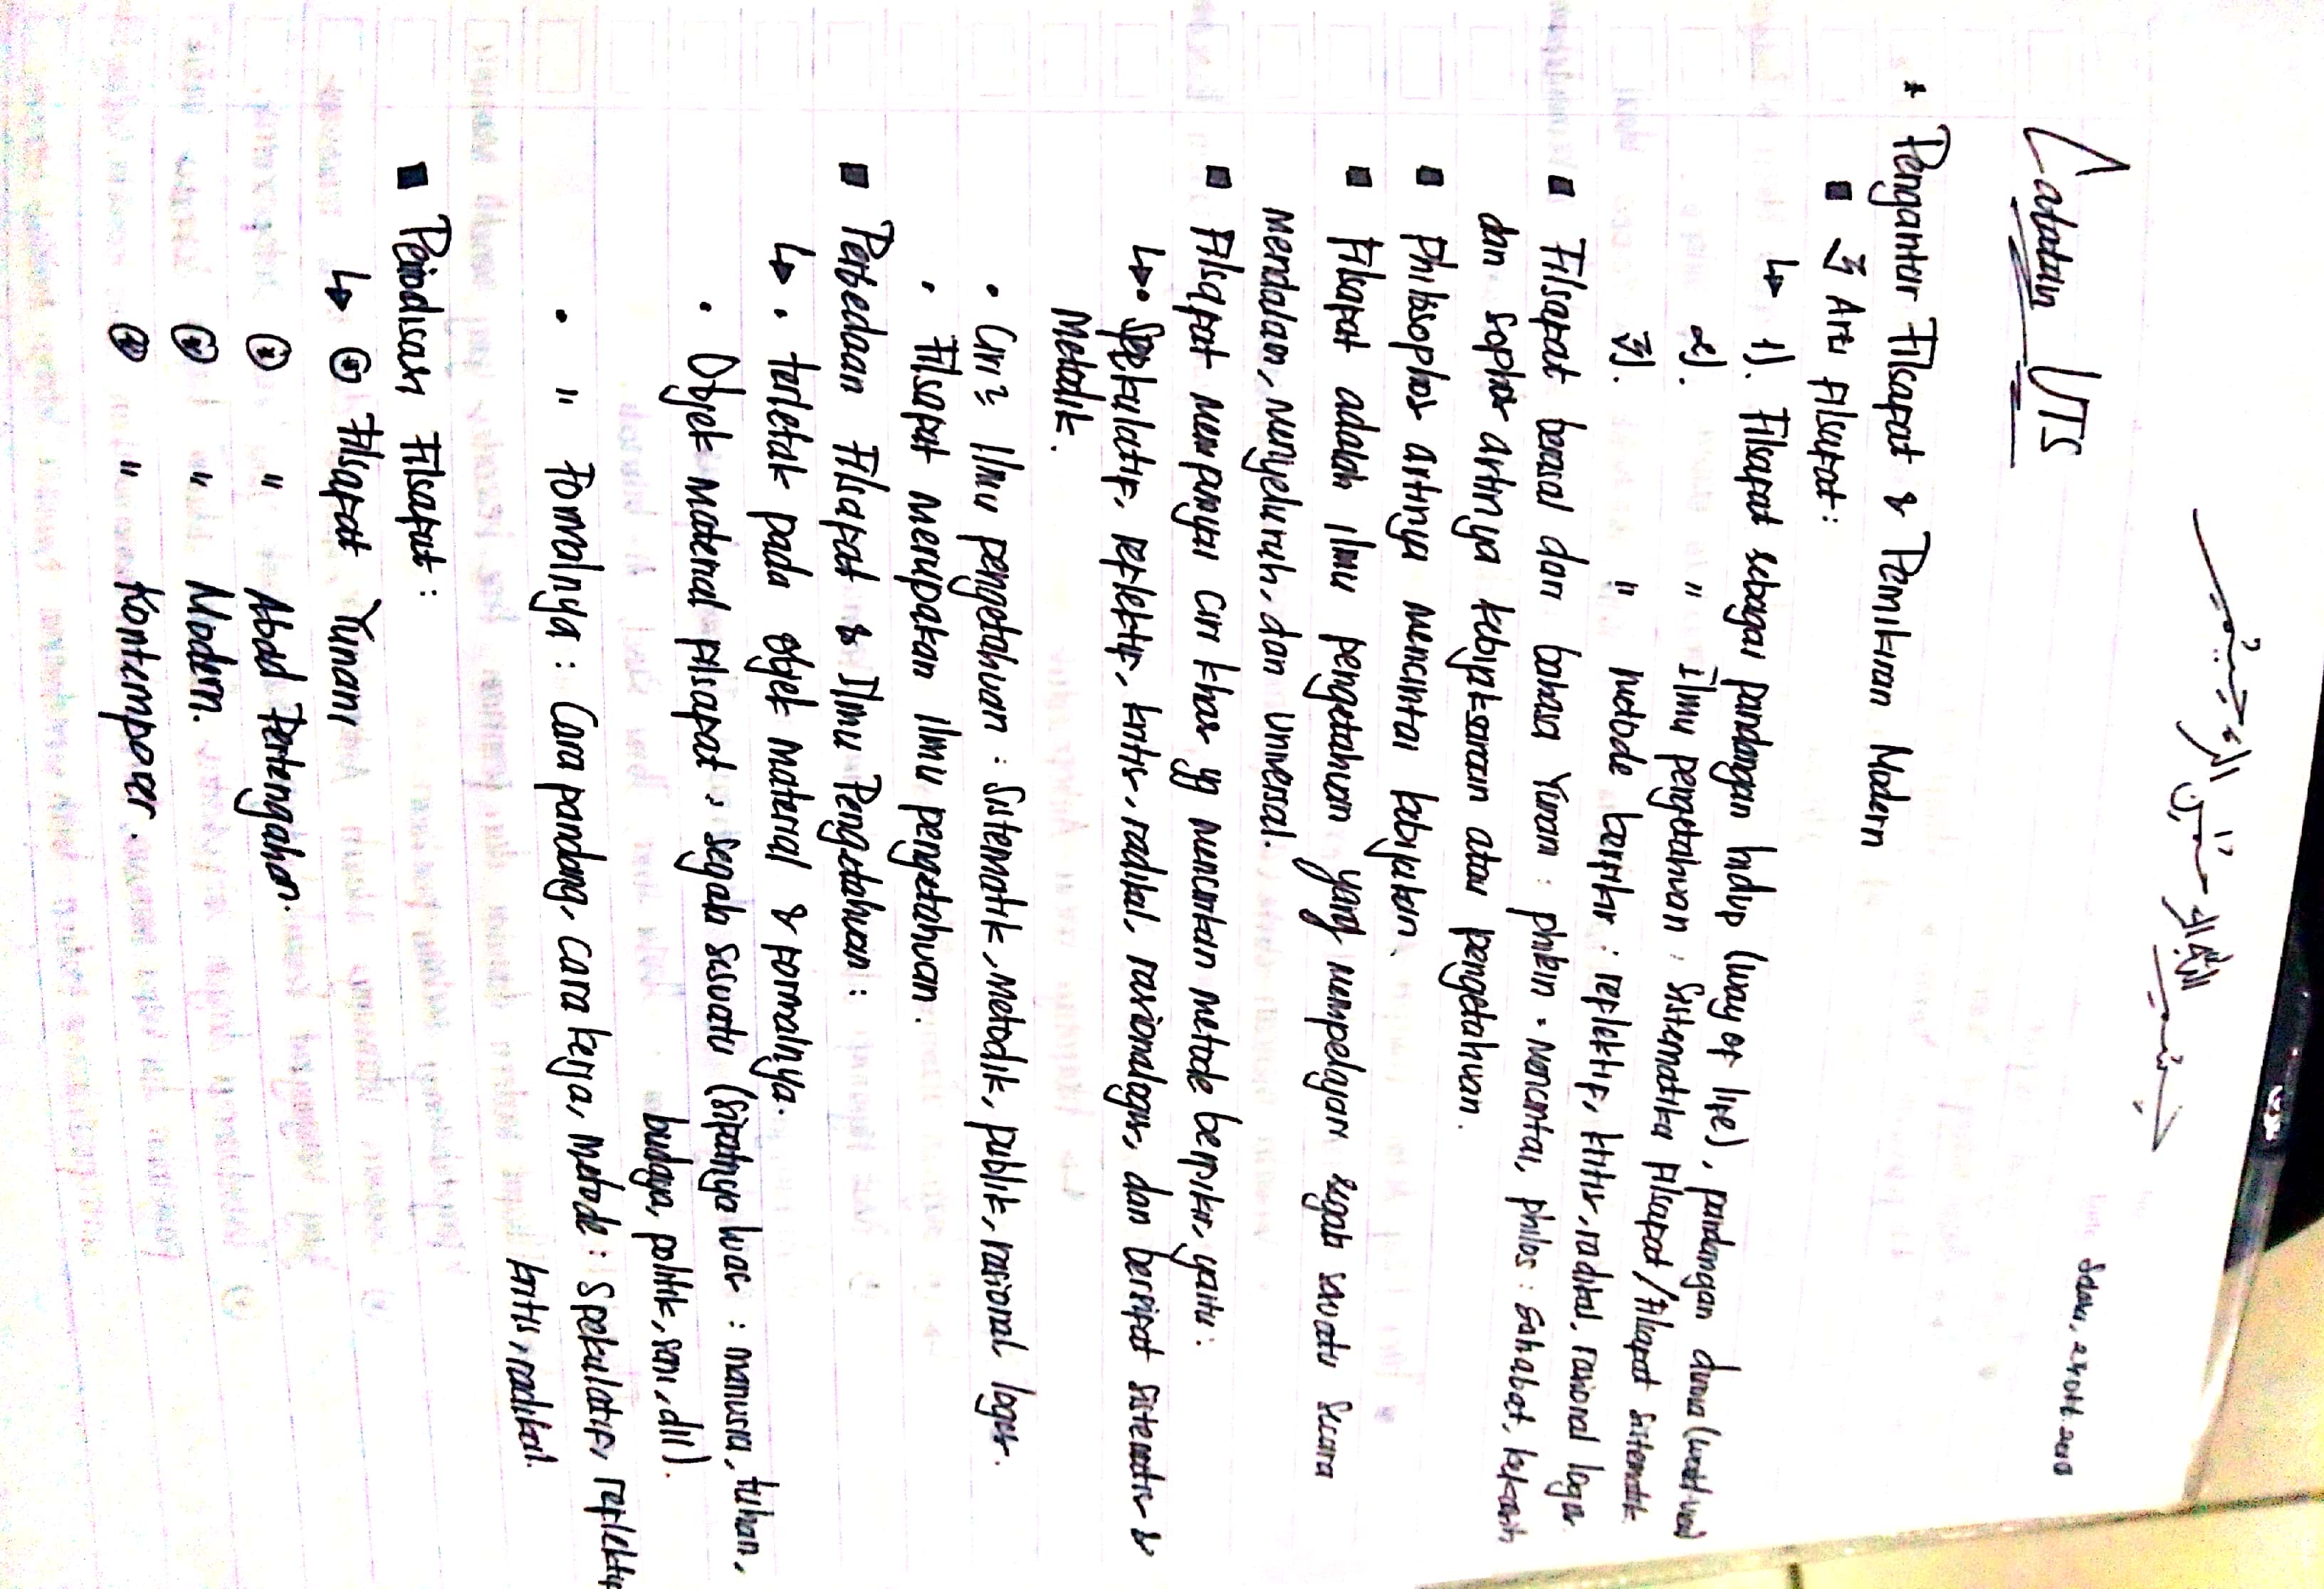 بسم الله الرحمن الرحيم
Catatan UTS
* Pengantar Filsafat & Pemikiran Modern
▪ 3 Arti Filsafat:
↳ 1). Filsafat sebagai pandangan hidup (way of life), pandangan dunia
2). " Ilmu pengetahuan, Sistematika Filsafat/Filsafat sistematik
3). " metode berfikir : reflektif, kritis, radikal, rasional logis
▪ Filsafat berasal dari bahasa Yunani : philein = mencintai, philos : sahabat, kekasih
dan sophos artinya kebijaksanaan atau pengetahuan.
▪ Philosophos artinya mencintai kebijakan.
▪ Filsafat adalah ilmu pengetahuan yang mempelajari segala sesuatu secara
mendalam, menyeluruh, dan Universal.
▪ Filsafat mempunyai ciri khas yg mencirikan metode berfikir, yaitu:
↳ • Spekulatif, reflektif, kritis, radikal, rasional logis, dan bersifat sistematis &
Metodik.
• Ciri² Ilmu pengetahuan : Sistematik, Metodik, publik, rasional logis.
• Filsafat merupakan ilmu pengetahuan.
▪ Perbedaan Filsafat & Ilmu Pengetahuan :
↳ • terletak pada objek material & formalnya.
• Objek material filsafat : segala sesuatu (sifatnya luas : manusia, tuhan,
budaya, politik, seni, dll).
• " Formalnya : Cara pandang, cara kerja, metode : Spekulatif, reflektif
kritis, radikal.
▪ Periodisasi Filsafat :
↳ Filsafat Yunani
" Abad Pertengahan.
" Modern.
" Kontemporer.